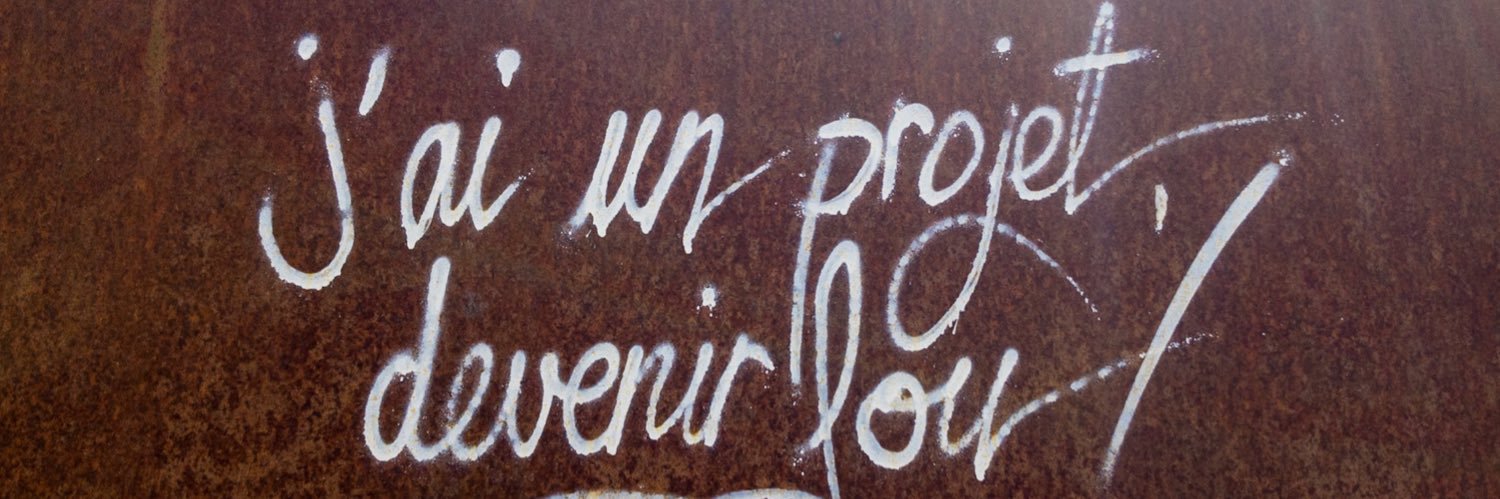 j'ai un projet
devenir fou